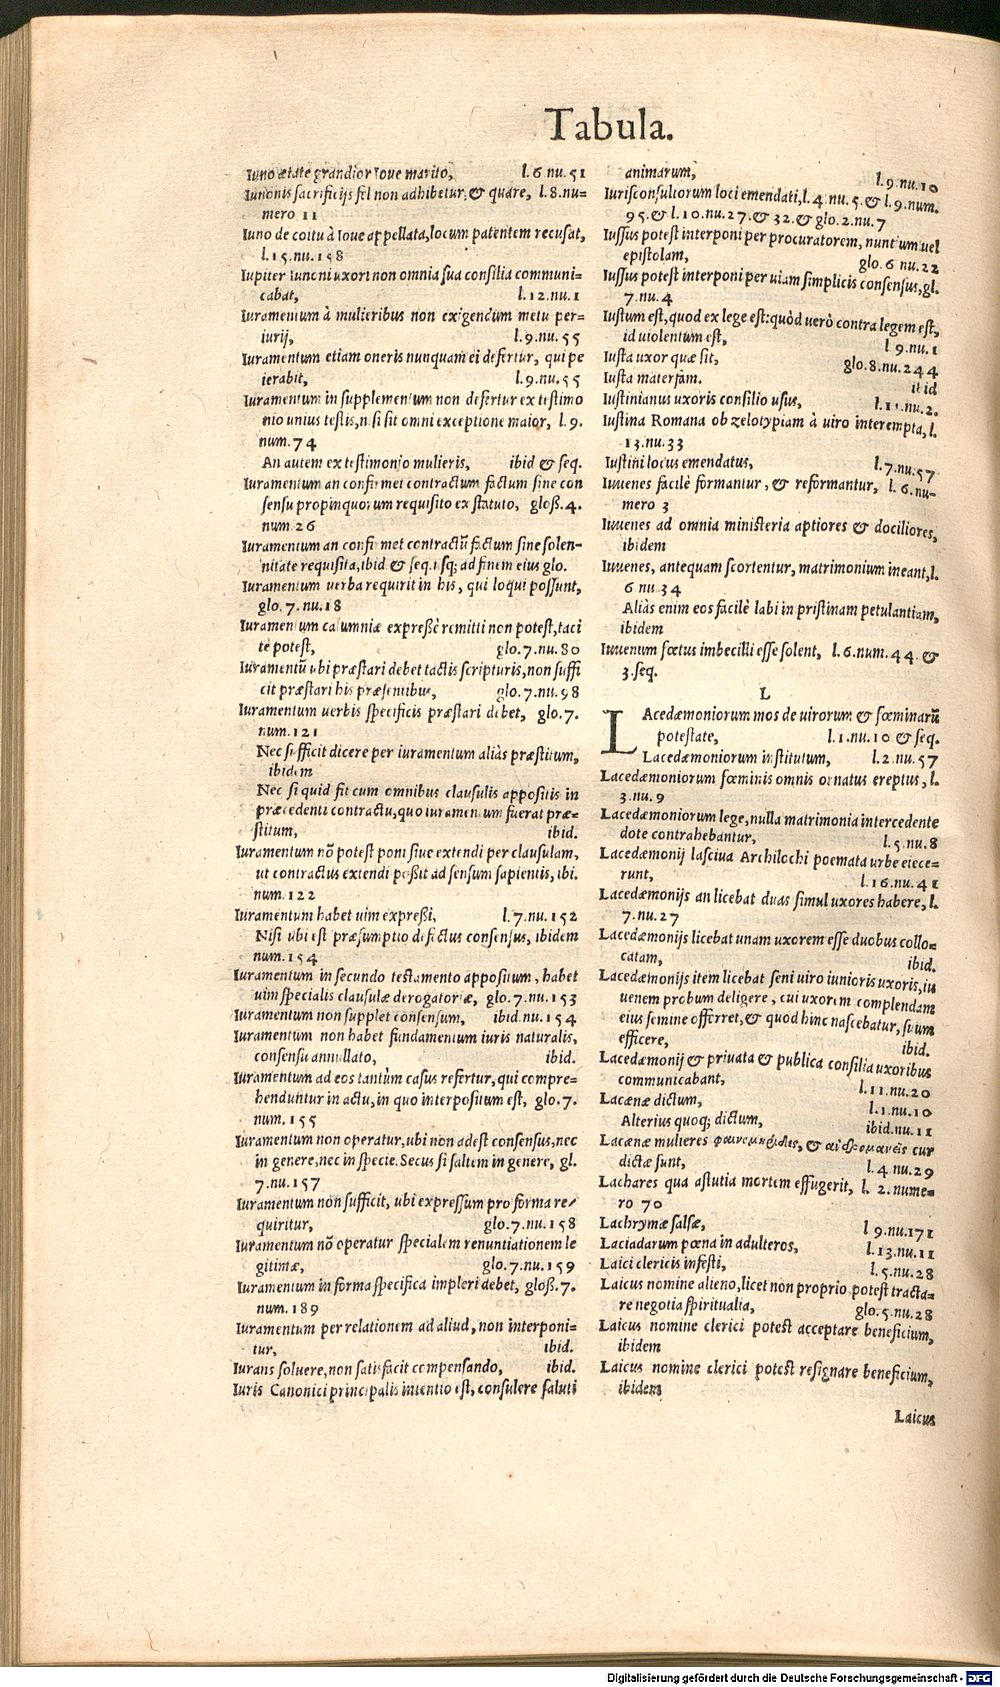 Tabula.
Iuno ætate grandior Ioue marito, l. 6 nu. 51
Iunonis sacrificijs fel non adhibetur, & quare, l. 8. nu=
mero 11
Iuno de coitu à Ioue appellata, locum patentem recusat,
l. 15. nu. 158
Iupiter Iunoni uxori non omnia sua consilia communi=
cabat, l. 12. nu. 1
Iuramentum à mulieribus non exigendum metu per=
iurij, l. 9. nu. 55
Iuramentum etiam oneris nunquam ei defertur, qui pe
ierabit, l. 9. nu. 55
Iuramentum in supplementum non defertur ex testimo
nio unius testis, nisi sit omni exceptione maior, l. 9.
num. 74
An autem ex testimonio mulieris, ibid & seq.
Iuramentum an confirmet contractum factum sine con
sensu propinquorum requisito ex statuto, gloß. 4.
num 26
Iuramentum an confirmet contractũ factum sine solen-
nitate requisita, ibid & seq. usq; ad finem eius glo.
Iuramentum uerba requirit in his, qui loqui possunt,
glo. 7. nu. 18
Iuramentum calumniæ expreßè remitti non potest, taci
tè potest, glo. 7. nu. 80
Iuramentũ ubi præstari debet tactis scripturis, non suffi
cit præstari his præsentibus, glo. 7. nu. 98
Iuramentum uerbis specificis præstari debet, glo. 7.
num. 121
Nec sufficit dicere per iuramentum aliàs præstitum,
ibidem
Nec si quid fit cum omnibus clausulis appositis in
præcedenti contractu, quo iuramentum fuerat præ=
stitum, ibid.
Iuramentum nõ potest poni siue extendi per clausulam,
ut contractus extendi poßit ad sensum sapientis, ibi.
num. 122
Iuramentum habet uim expreßi, l. 7. nu. 152
Nisi ubi est præsumptio defectus consensus, ibidem
num. 154
Iuramentum in secundo testamento appositum, habet
uim specialis clausulæ derogatoriæ, glo. 7. nu. 153
Iuramentum non supplet consensum, ibid. nu. 154
Iuramentum non habet fundamentum iuris naturalis,
consensu annullato, ibid.
Iuramentum ad eos tantùm casus refertur, qui compre=
henduntur in actu, in quo interpositum est, glo. 7.
num. 155
Iuramentum non operatur, ubi non adest consensus, nec
in genere, nec in specie. Secus si saltem in genere, gl.
7. nu. 157
Iuramentum non sufficit, ubi expressum pro forma re/
quiritur, glo. 7. nu. 158
Iuramentum nõ operatur specialem renuntiationem le
gitimæ, glo. 7. nu. 159
Iuramentum in forma specifica impleri debet, gloß. 7.
num. 189
Iuramentum per relationem ad aliud, non interponi=
tur, ibid.
Iurans soluere, non satisfacit compensando, ibid.
Iuris Canonici principalis intentio est, consulere saluti
animarum, l. 9. nu. 10
Iurisconsultorum loci emendati, l. 4. nu. 5. & l. 9. num.
95. & l. 10. nu. 27. & 32. & glo. 2. nu. 7
Iussus potest interponi per procuratorem, nuntium uel
epistolam, glo. 6 nu. 22
Iussus potest interponi per uiam simplicis consensus, gl.
7. nu. 4
Iustum est, quod ex lege est: quòd uerò contra legem est,
id uiolentum est, l 9. nu. 1
Iusta uxor quæ sit, glo. 8. nu. 244
Iusta materfam. ibid
Iustinianus uxoris consilio usus, l. 11. nu. 2.
Iustina Romana ob zelotypiam à uiro interempta, l.
13. nu. 33
Iustini locus emendatus, l. 7. nu. 57
Iuuenes facilè formantur, & reformantur, l. 6. nu=
mero 3
Iuuenes ad omnia ministeria aptiores & dociliores,
ibidem
Iuuenes, antequam scortentur, matrimonium ineant, l.
6 nu. 34
Aliàs enim eos facilè labi in pristinam petulantiam,
ibidem
Iuuenum fœtus imbecilli esse solent, l. 6. num. 44. &
3. seq.
L
LAcedæmoniorum mos de uirorum & fœminarũ
potestate, l. 1. nu. 10 & seq.
Lacedæmoniorum institutum, l. 2. nu. 57
Lacedæmoniorum fœminis omnis ornatus ereptus, l.
3. nu. 9
Lacedæmoniorum lege, nulla matrimonia intercedente
dote contrahebantur, l. 5. nu. 8
Lacedæmonij lasciua Archilochi poemata urbe eiece=
runt, l. 16. nu. 41
Lacedæmonijs an licebat duas simul uxores habere, l.
7. nu. 27
Lacedæmonijs licebat unam uxorem esse duobus collo=
catam, ibid.
Lacedæmonijs item licebat seni uiro iunioris uxoris, iu
uenem probum deligere, cui uxorem complendam
eius semine offerret, & quod hinc nascebatur, suum
efficere, ibid.
Lacedæmonij & priuata & publica consilia uxoribus
communicabant, l. 11. nu. 20
Lacænæ dictum, l. 1. nu. 10
Alterius quoq; dictum, ibid. nu. 11
Lacænæ mulieres φαινομηρίδες, & ἀνδρομανεῖς cur
dictæ sunt, l. 4 nu. 29
Lachares qua astutia mortem effugerit, l. 2. nume=
ro 70
Lachrymæ salsæ, l 9. nu. 171
Laciadarum pœna in adulteros, l. 13. nu. 11
Laici clericis infesti, l. 5. nu. 28
Laicus nomine alieno, licet non proprio potest tracta=
re negotia spiritualia, glo. 5. nu. 28
Laicus nomine clerici potest acceptare beneficium,
ibidem
Laicus nomine clerici potest resignare beneficium,
ibidem
Laicus
Digitalisierung gefördert durch die Deutsche Forschungsgemeinschaft - DFG